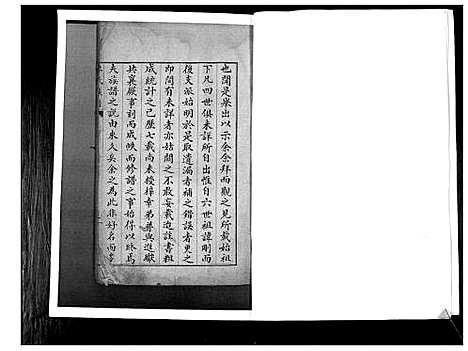 也閱是舉出以示余余拜而觀之見所載始祖
下凡四世俱未詳所自出惟自六世祖諱剛而
後支派始明於是取遺漏者補之錯誤者更之
即間有未詳者亦姑闕之不敢妄載逰註書雖
成統計之已歷七載尚未授梓幸弟善與逰
共襄厥事刻而成帙而修譜之事始得以終焉
夫族譜之說由來久矣余之為此非好名而多